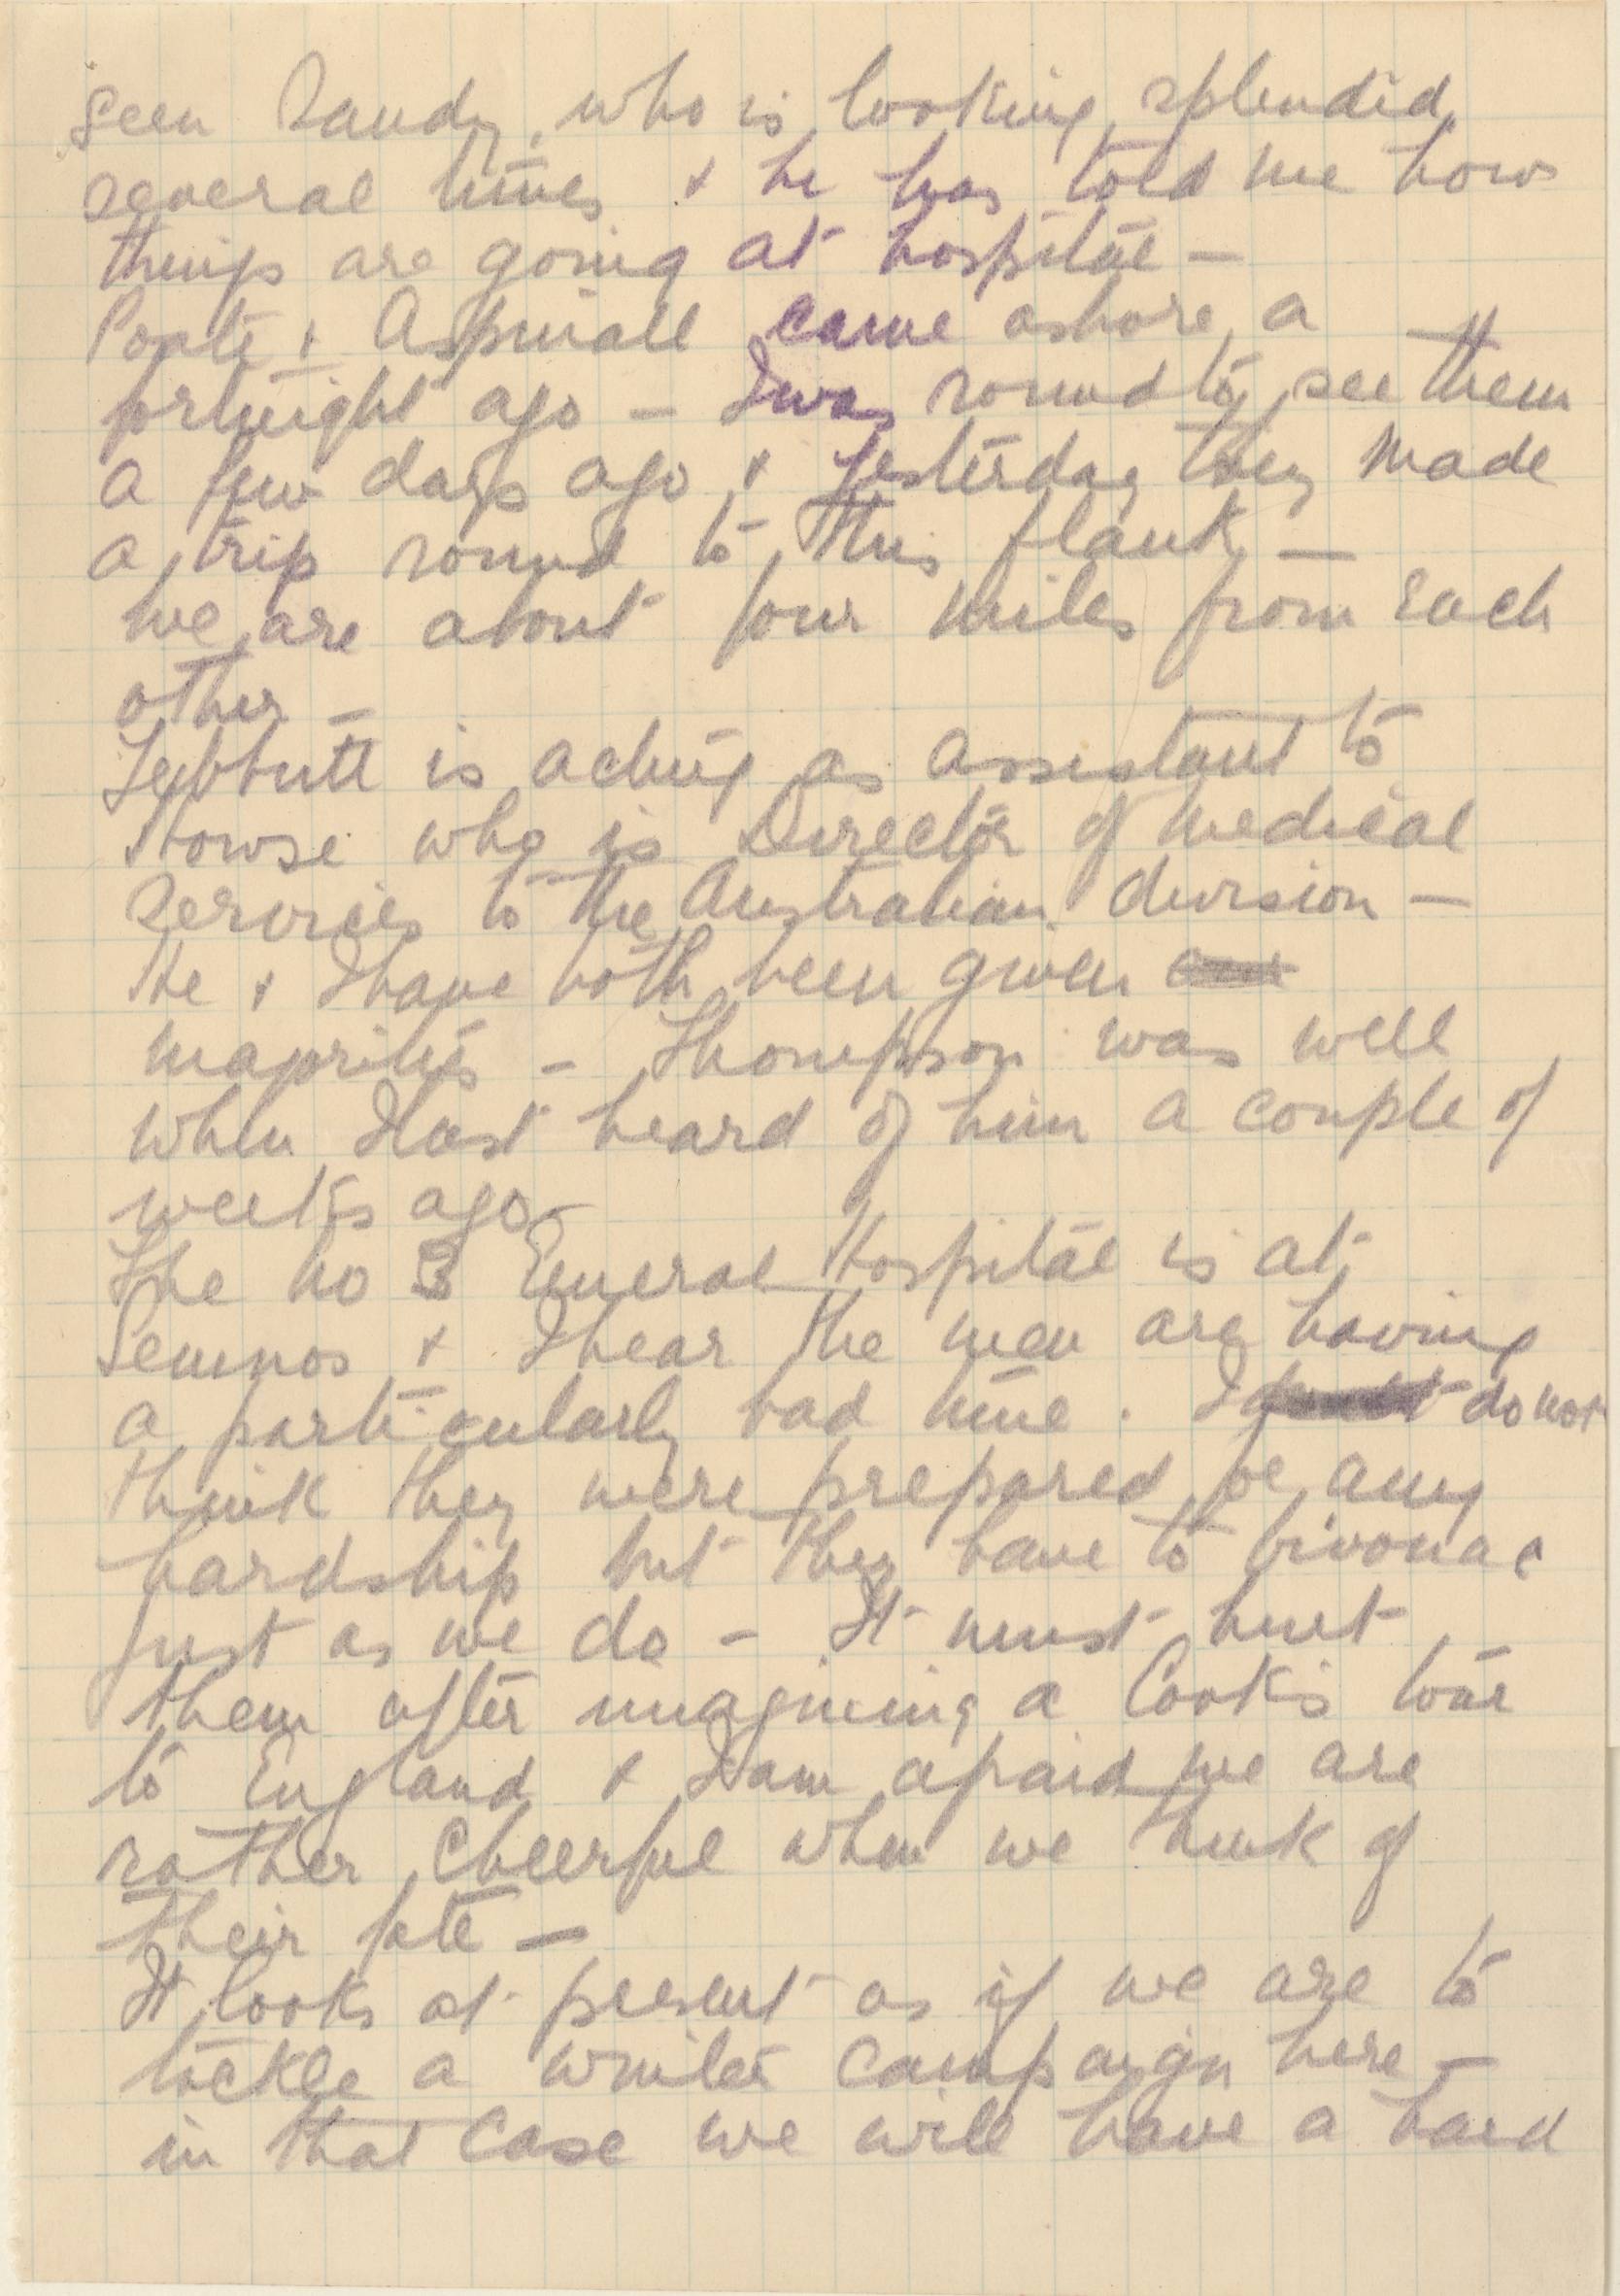 seen Sandy, who is looking splendid,
several times & he has told me how
things are going at hospital —
Poate & Aspinall came ashore a
fortnight ago — I was round to see them
a few days ago & yesterday they made
a trip round to this flank —
we are about four miles from each
other —
Tebbutt is acting as assistant to
Howse who is Director of Medical
Services to the Australian division —
He & I have both been given
majorities — Thompson was well
when I last heard of him a couple of
weeks ago —
The No 3 General Hospital is at
Lemnos & I hear the men are having
a particularly bad time. I do not
think they were prepared for any
hardship but they have to bivouac
just as we do — It must hurt
them after imagining a Cook's tour
to England & I am afraid we are
rather cheerful when we think of
their fate —
It looks at present as if we are to
tackle a winter campaign here —
in that case we will have a hard